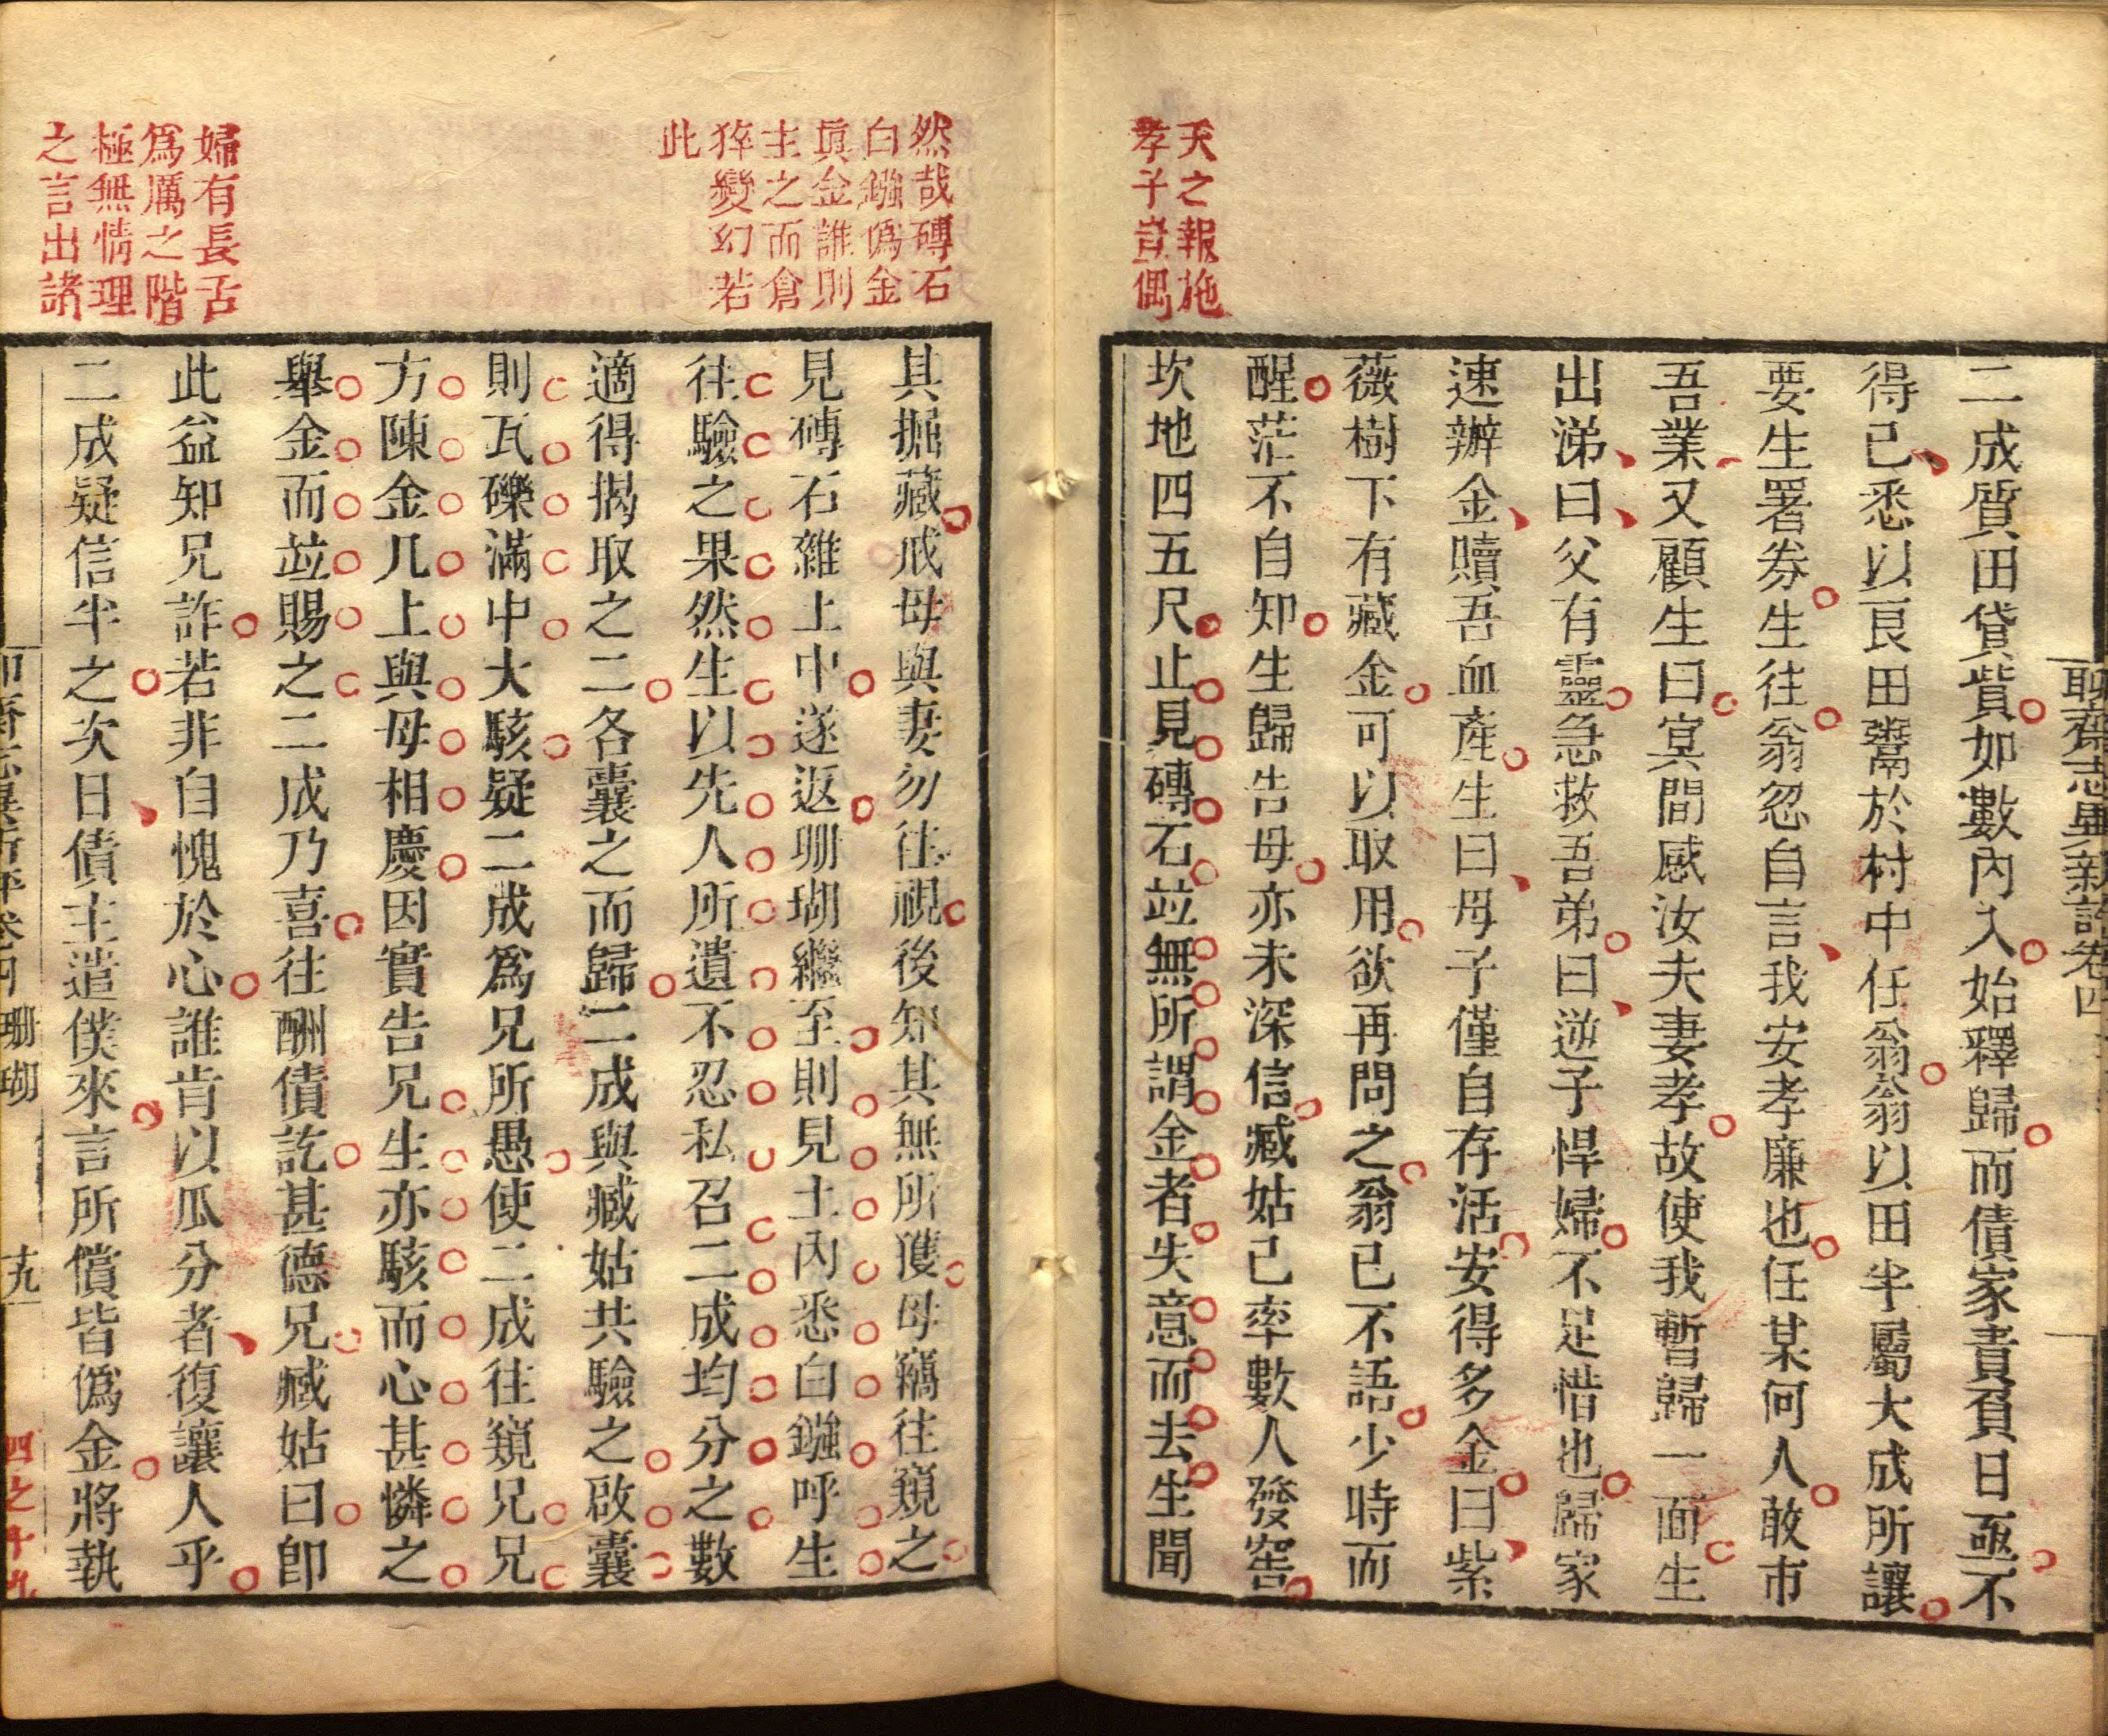 聊齋志異新評卷四
天之報施
孝子豈偶
二成質田貸貲如數內入始釋歸而債家責負日亟不
得已悉以良田鬻於村中任翁翁以田半屬大成所讓
要生署券生往翁忽自言我安孝廉也任某何人敢市
吾業又顧生曰冥間感汝夫妻孝故使我暫歸一面生
出涕曰父有靈急救吾弟曰逆子悍婦不足惜也歸家
速辦金贖吾血產生曰母子僅自存活安得多金曰紫
薇樹下有藏金可以取用欲再問之翁已不語少時而
醒茫不自知生歸告母亦未深信臧姑已率數人發窖
坎地四五尺止見磚石並無所謂金者失意而去生聞
然哉磚石
白鏹僞金
眞金誰則
主之而倉
猝變幻若
此
婦有長舌
爲厲之階
極無情理
之言出諸
其掘藏戒母與妻勿往視後知其無所獲母竊往窺之
見磚石雜土中遂返珊瑚繼至則見土內悉白鏹呼生
往驗之果然生以先人所遺不忍私召二成均分之數
適得揭取之二各囊之而歸二成與臧姑共驗之啟囊
則瓦礫滿中大駭疑二成爲兄所愚使二成往窺兄兄
方陳金几上與母相慶因實告兄生亦駭而心甚憐之
舉金而並賜之二成乃喜往酬債訖甚德兄臧姑曰卽
此益知兄詐若非自愧於心誰肯以瓜分者復讓人乎
二成疑信半之次日債主遣僕來言所償皆僞金將執
珊瑚
十九
四之十九